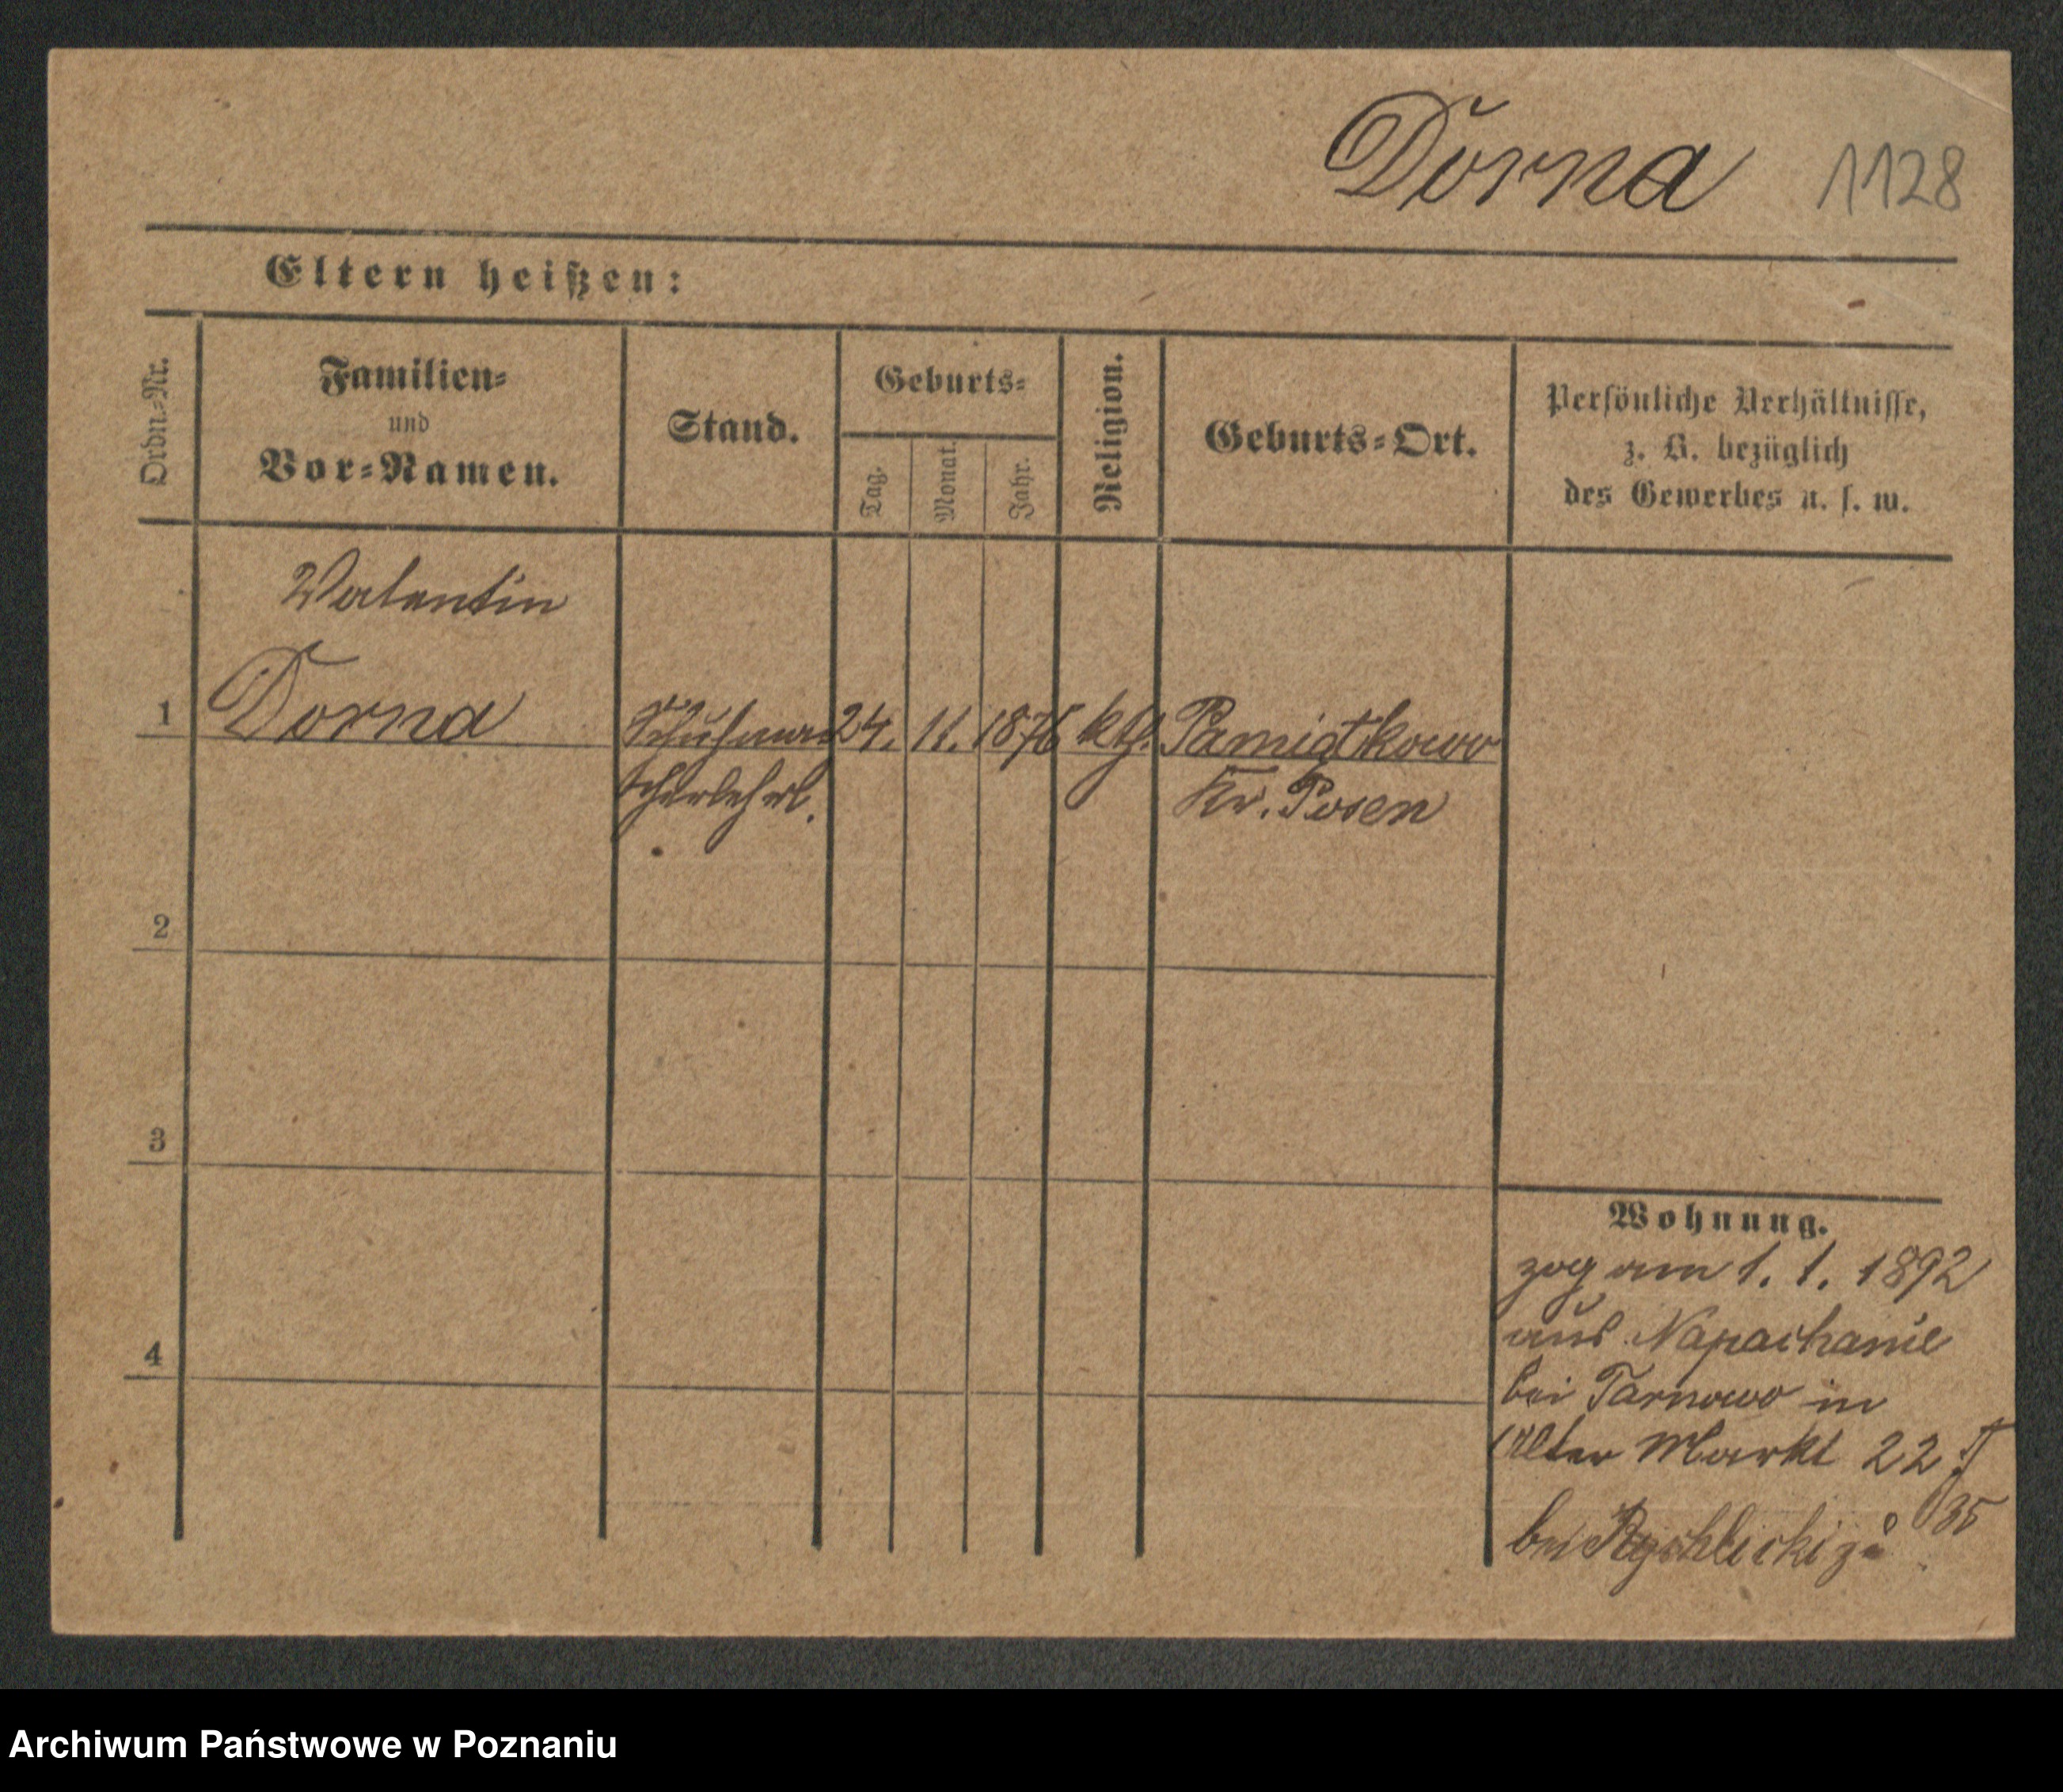 Dorna 1128
Eltern heißen:
Ordn.-Nr.
Familien-
und
Vor-Namen.
Stand.
Geburts-
Tag.
Monat.
Jahr.
Religion.
Geburts-Ort.
Persönliche Verhältnisse,
z. B. bezüglich
des Gewerbes u. s. w.
Valentin
1 Dorna Schuhma 24. 11. 1876 kth. Pamiątkowo
cherlehrl. Kr. Posen
2
3
4
Wohnung.
zog am 1. 1. 1892
aus Napachanie
bei Tarnowo in
Alter Markt 22
bei Rychlicki zu
Archiwum Państwowe w Poznaniu